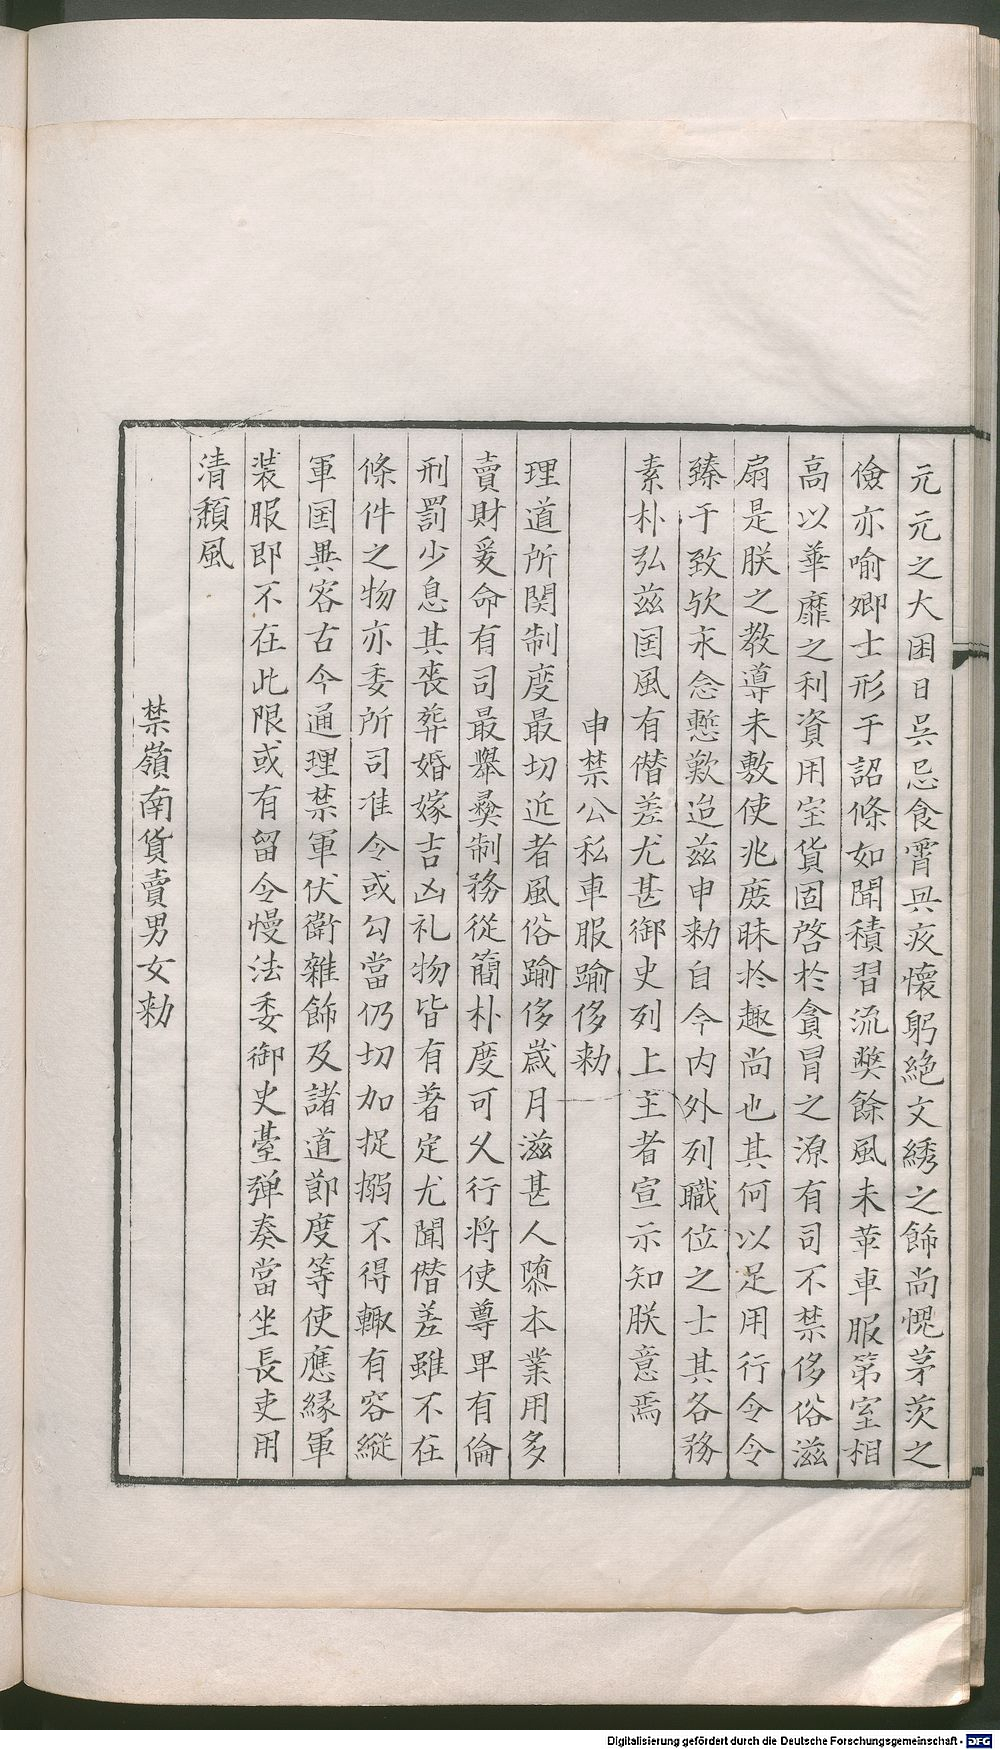 元元之大困日昃忌食霄興疚懷躬絶文綉之飾尚愧茅茨之
儉亦喻卿士形于詔條如聞積習流獘餘風未革車服第室相
高以華靡之利資用室貨固啓扵貪冒之源有司不禁侈俗滋
扇是朕之教導未敷使兆庻昧扵趣尚也其何以足用行令令
臻于致欤永念慙歎迨兹申勑自今内外列職位之士其各務
素朴弘兹囯風有僭差尤甚御史列上主者宣示知朕意焉
申禁公私車服踰侈勑
理道所関制度最切近者風俗踰侈歳月滋甚人隳本業用多
賣財爰命有司最舉彜制務從簡朴度可乆行将使尊卑有倫
刑罰少息其喪葬婚嫁吉凶礼物皆有著定尤聞僭差雖不在
條件之物亦委所司准令或勾當仍切加捉搦不得輙有容縱
軍囯異容古今通理禁軍伏衛雜飾及諸道節度等使應縁軍
装服即不在此限或有留令慢法委御史臺弹奏當坐長吏用
清頽風
禁嶺南貨賣男女勑
Digitalisierung gefördert durch die Deutsche Forschungsgemeinschaft - DFG